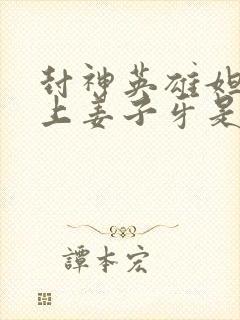 封神英雄妲
上姜子牙是
譚本宏